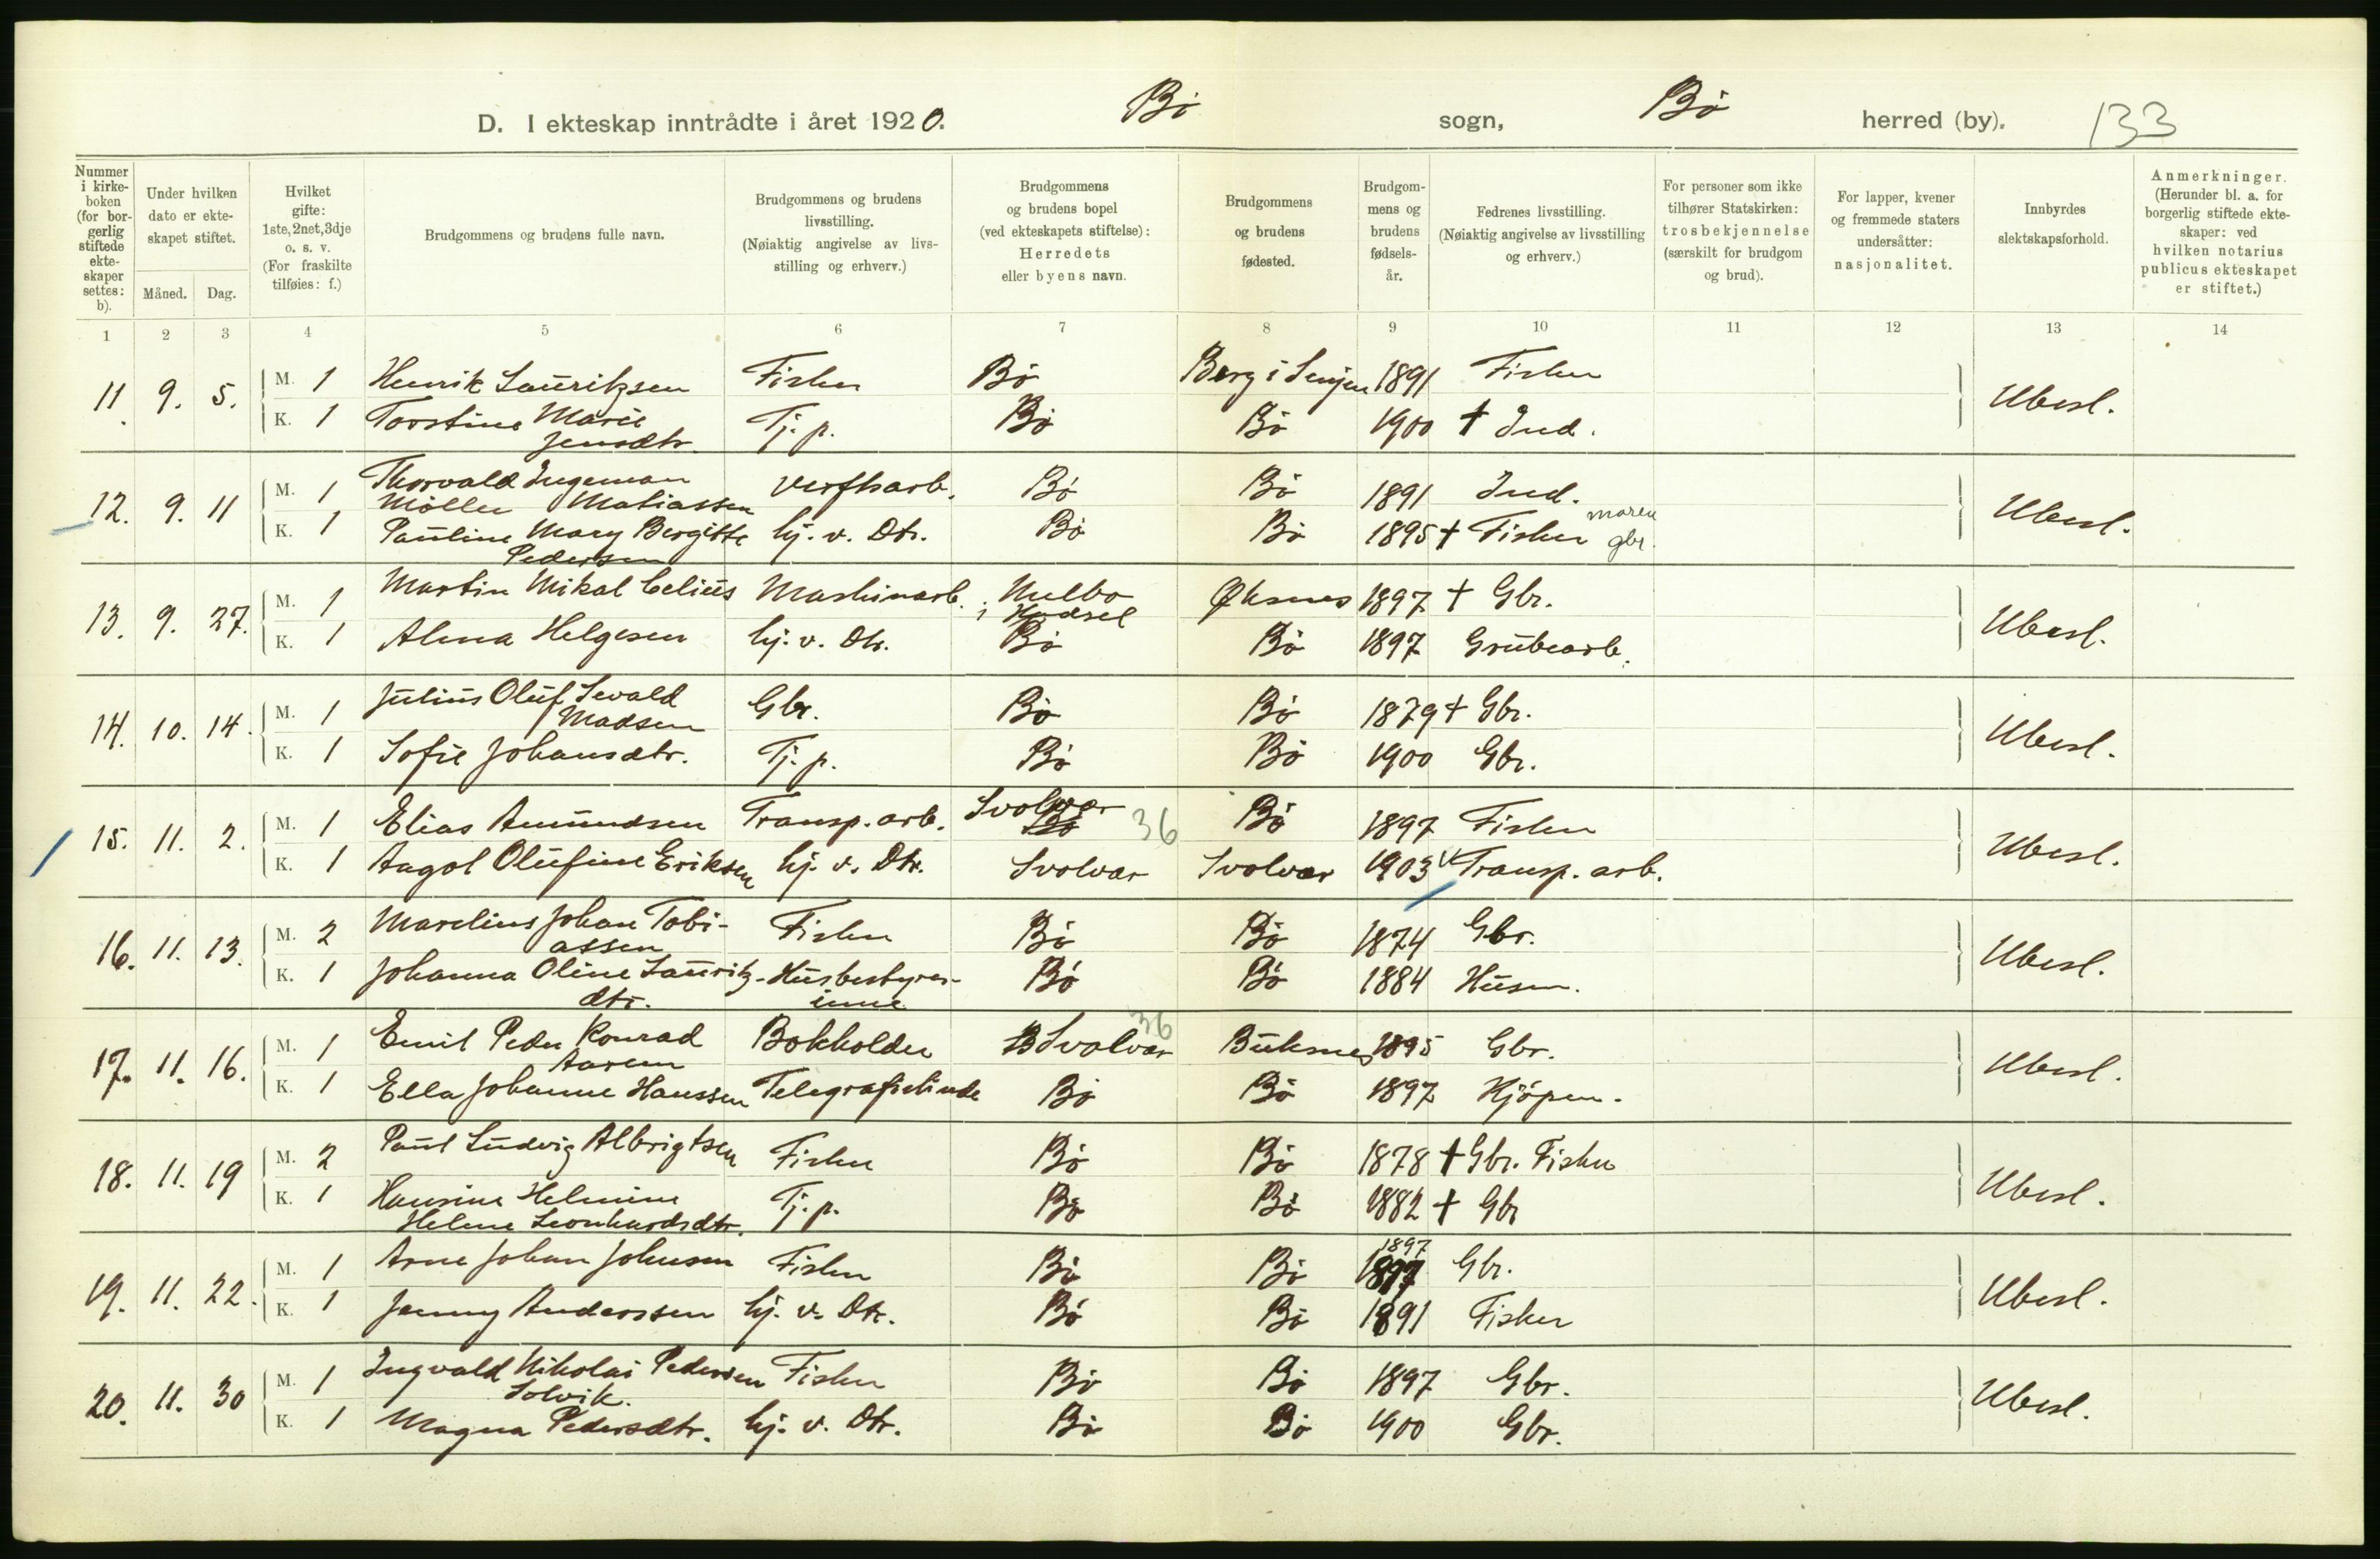 D. I ekteskap inntrådte i året 1920. Bø sogn, Bø herred (by). 133
Nummer i kirkeboken (for borgerlig stiftede ekteskaper settes: b).
Under hvilken dato er ekteskapet stiftet.
Måned. Dag.
Hvilket gifte: 1ste, 2net, 3dje o. s. v. (For fraskilte tilføies: f.)
Brudgommens og brudens fulle navn.
Brudgommens og brudens livsstilling. (Nøiaktig angivelse av livsstilling og erhverv.)
Brudgommens og brudens bopel (ved ekteskapets stiftelse): Herredets eller byens navn.
Brudgommens og brudens fødested.
Brudgommens og brudens fødselsår.
Fedrenes livsstilling. (Nøiaktig angivelse av livsstilling og erhverv.)
For personer som ikke tilhører Statskirken: trosbekjennelse (særskilt for brudgom og brud).
For lapper, kvener og fremmede staters undersåtter: nasjonalitet.
Innbyrdes slektskapsforhold.
Anmerkninger. (Herunder bl. a. for borgerlig stiftede ekteskaper: ved hvilken notarius publicus ekteskapet er stiftet.)
1 2 3 4 5 6 7 8 9 10 11 12 13 14
11. 9. 5. M. 1 Henrik Lauritzsen Fisker Bø Berg i Senjen 1891 Fisker Ubesl.
K. 1 Torstine Marie Jensdtr. Tj. p. Bø Bø 1900 † Ind.
12. 9. 11 M. 1 Thorvald Ingeman Möller Matiassen Verftsarb. Bø Bø 1891 Ind. Ubesl.
K. 1 Pauline Mary Bergitte Pedersen hj. v. Dtr. Bø Bø 1895 † Fisker gbr.
13. 9. 27. M. 1 Martin Mikal Celius Maskinarb. Melbo i Hadsel Øksnes 1897 † Gbr. Ubesl.
K. 1 Alma Helgesen hj. v. Dtr. Bø Bø 1897 Grubearb.
14. 10. 14. M. 1 Julius Oluf Sevald Madsen Gbr. Bø Bø 1879 † Gbr. Ubesl.
K. 1 Sofie Johansdtr. Tj. p. Bø Bø 1900 Gbr.
15. 11. 2. M. 1 Elias Amundsen Transp. arb. Svolvær Bø 36 Bø 1897 Fisker Ubesl.
K. 1 Aagot Olufine Eriksen hj. v. Dtr. Svolvær Svolvær 1903 Transp. arb.
16. 11. 13. M. 2 Marelius Johan Tobiassen Fisker Bø Bø 1874 Gbr. Ubesl.
K. 1 Johanna Oline Lauritz-dtr. Husbestyrerinne Bø Bø 1884 Husm.
17. 11. 16. M. 1 Emil Peder Konrad Aarem Bokholder Svolvær 36 Buksnes 1895 Gbr. Ubesl.
K. 1 Ella Johanne Hanssen Telegrafistinde Bø Bø 1897 Kjöpm.
18. 11. 19 M. 2 Paul Ludvig Albrigtsen Fisker Bø Bø 1878 † Gbr. Fisker Ubesl.
K. 1 Hansine Helmine Helene Leonhardsdtr. Tj. p. Bø Bø 1882 † Gbr
19. 11. 22. M. 1 Arne Johan Johnsen Fisker Bø Bø 1897 1897 Gbr. Ubesl.
K. 1 Jenny Anderssen hj. v. Dtr. Bø Bø 1891 Fisker
20. 11. 30 M. 1 Ingvald Nikolai Pedersen Solvik. Fisker Bø Bø 1897 Gbr. Ubesl.
K. 1 Magna Pedersdtr. hj. v. Dtr. Bø Bø 1900 Gbr.